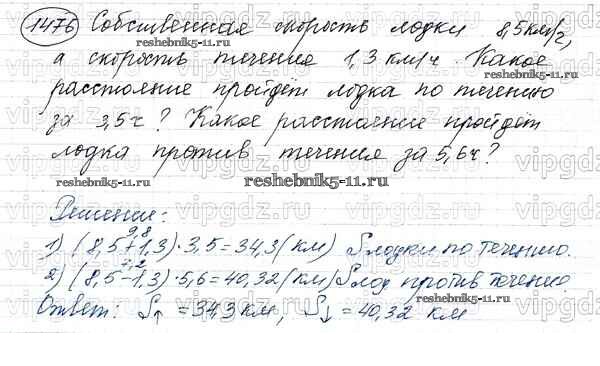 1476 Собственная скорость лодки 8,5 км/ч,
а скорость течения 1,3 км/ч. Какое
расстояние пройдёт лодка по течению
за 3,5ч? Какое расстояние пройдёт
лодка против течения за 5,6ч?
reshebnik5-11.ru
reshebnik5-11.ru
reshebnik5-11.ru
Решение:
9,8
1) (8,5+1,3)·3,5=34,3(км) S лодки по течению.
7,2
2) (8,5-1,3)·5,6=40,32(км) S лод против течению.
reshebnik5-11.ru
Ответ: S↑ = 34,3 км, S↓ = 40,32 км
vipgdz.ru